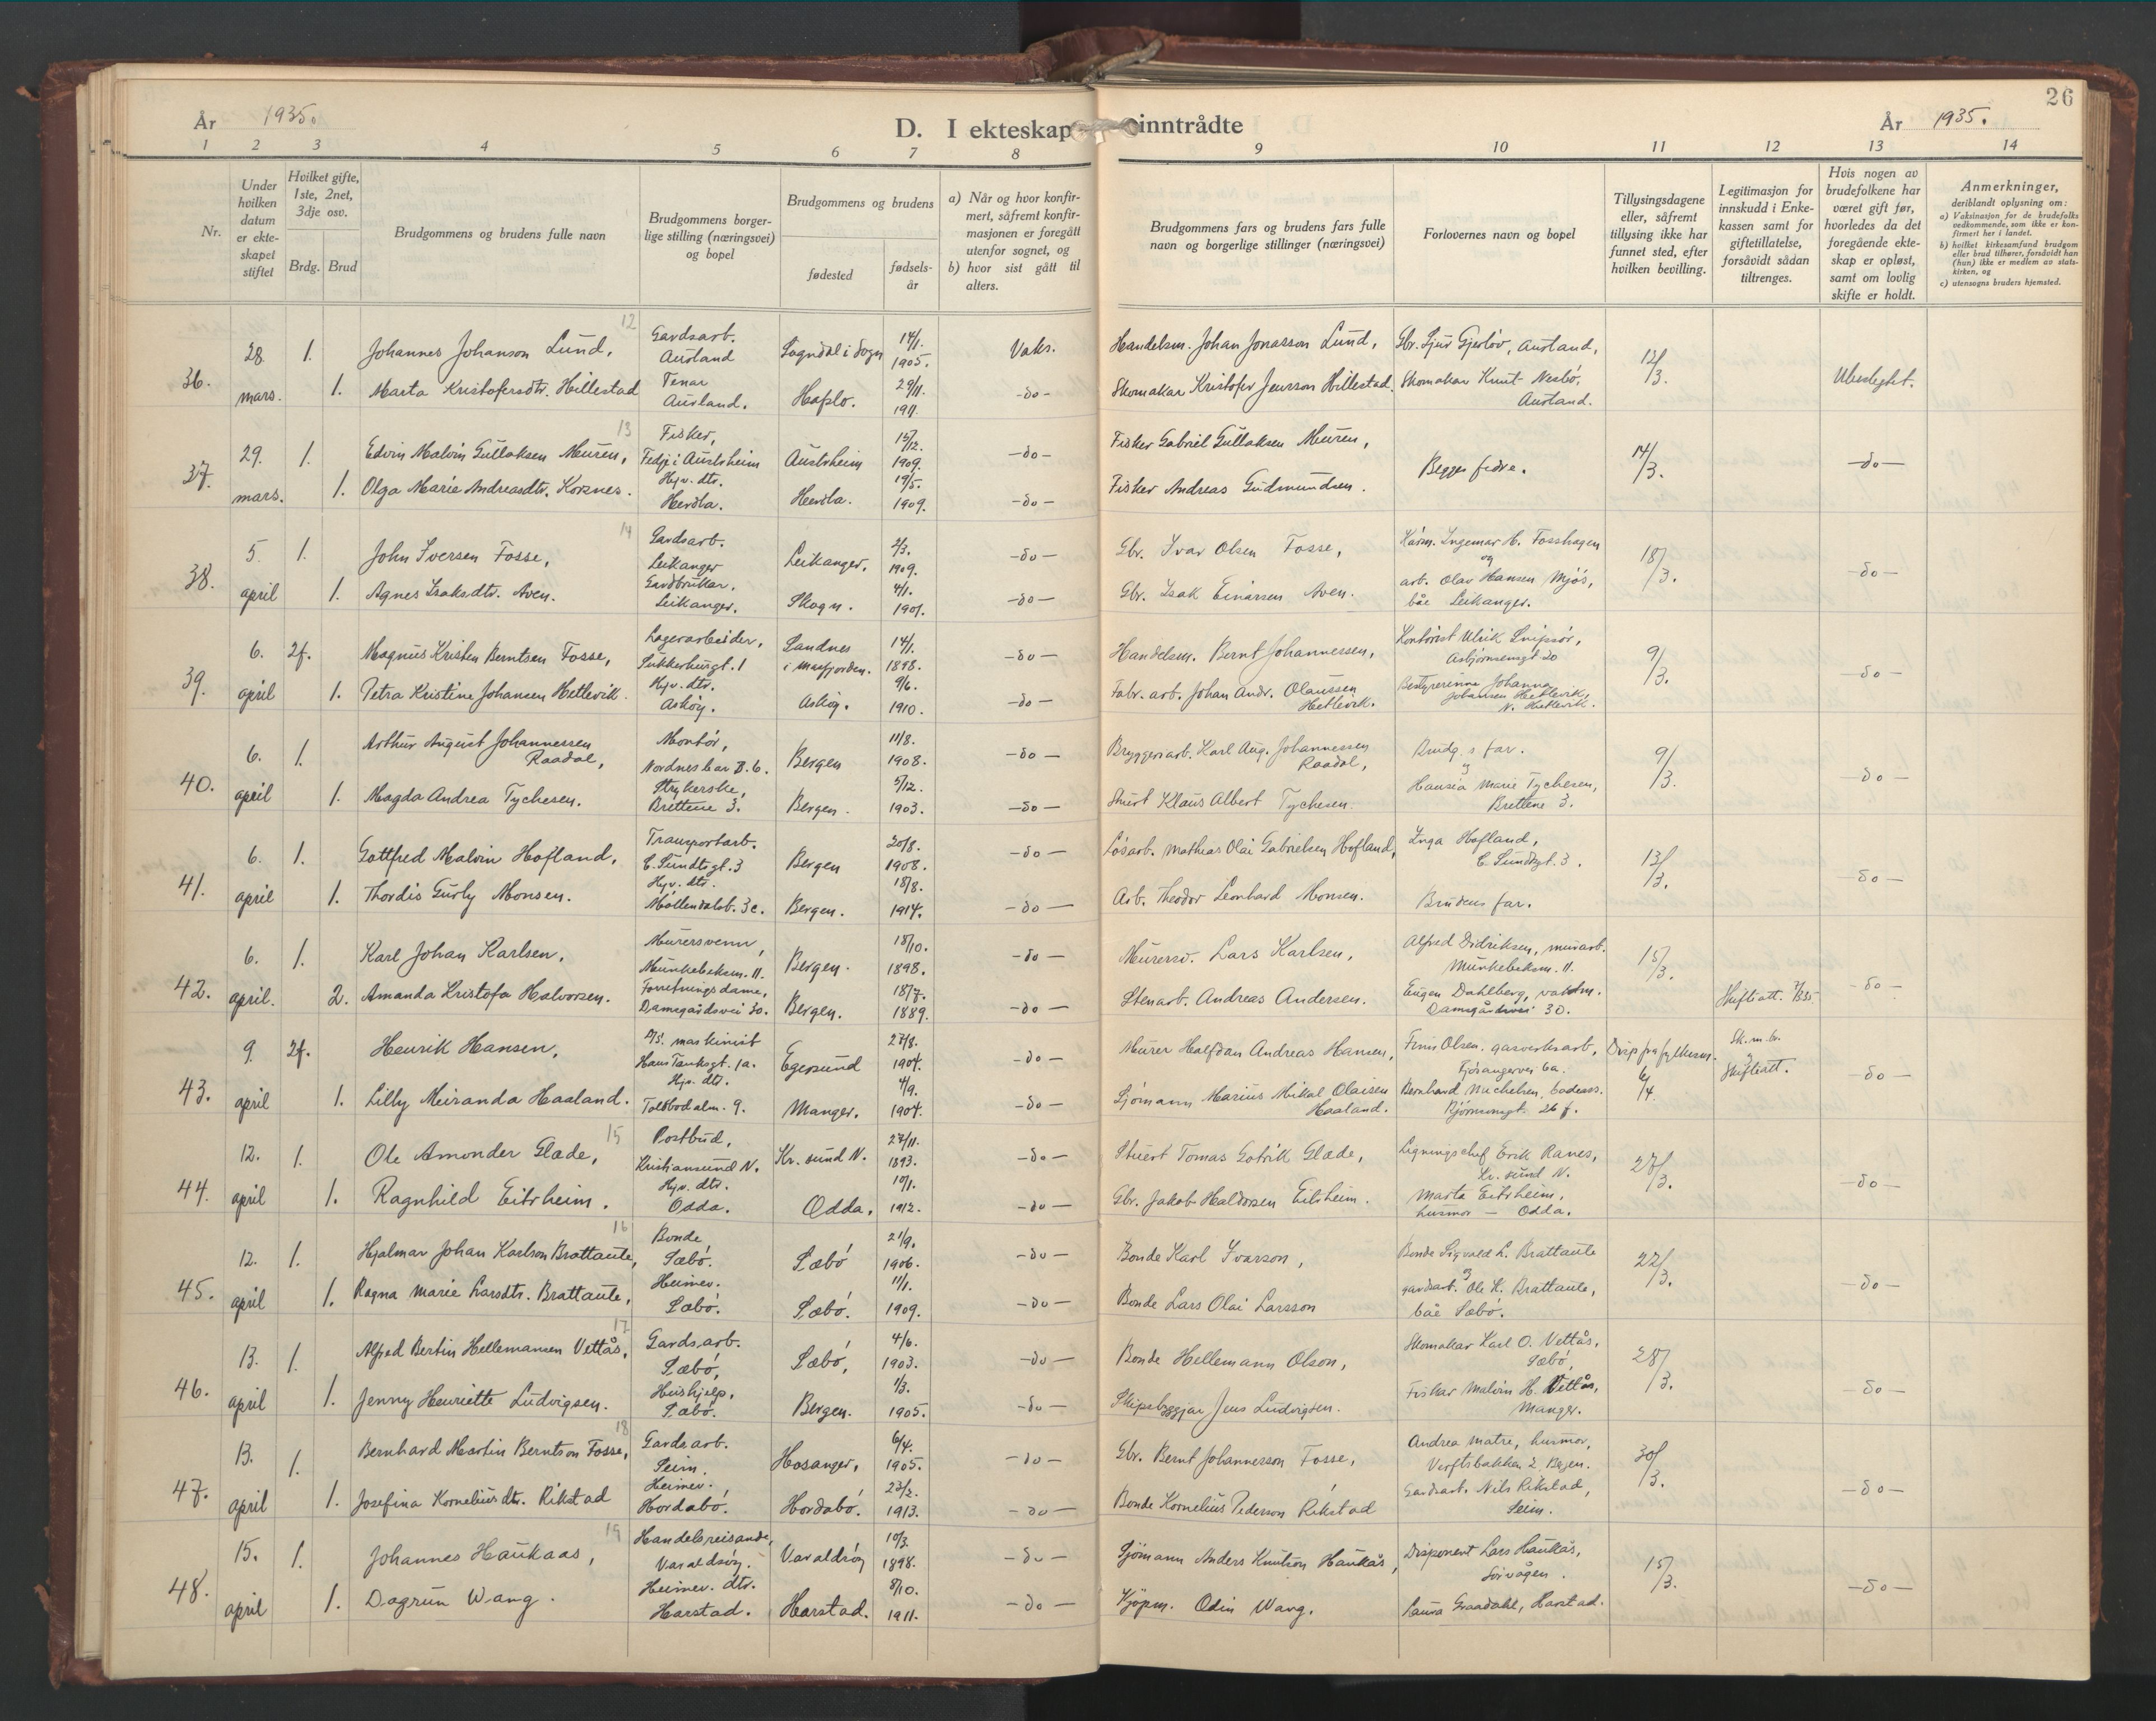 År 1935.
D. I ekteskap inntrådte
År 1935.
26
1 2 3 4 5 6 7 8 9 10 11 12 13 14
Nr.
Under hvilken datum er ekteskapet stiftet
Hvilket gifte, 1ste, 2net, 3dje osv.
Brdg. Brud
Brudgommens og brudens fulle navn
Brudgommens borgerlige stilling (næringsvei) og bopel
Brudgommens og brudens
fødested
fødselsår
a) Når og hvor konfirmert, såfremt konfirmasjonen er foregått utenfor sognet, og
b) hvor sist gått til alters.
Brudgommens fars og brudens fars fulle navn og borgerlige stillinger (næringsvei)
Forlovernes navn og bopel
Tillysingsdagene eller, såfremt tillysing ikke har funnet sted, efter hvilken bevilling.
Legitimasjon for innskudd i Enkekassen samt for giftetillatelse, forsåvidt sådan tiltrenges.
Hvis nogen av brudefolkene har været gift før, hvorledes da det foregående ekteskap er opløst, samt om lovlig skifte er holdt.
Anmerkninger, deriblandt oplysning om:
a) Vaksinasjon for de brudefolks vedkommende, som ikke er konfirmert her i landet.
b) hvilket kirkesamfund brudgom eller brud tilhører, forsåvidt han (hun) ikke er medlem av statskirken, og
c) utensogns bruders hjemsted.
36. 28 mars. 12
1. Johannes Johanson Lund, Gardsarb. Aurland Sogndal i Sogn 14/1. 1905. Vaks. Handelsm. Johan Jonasson Lund, Gbr. Sjur Gjerløv, Aurland, 12/3. Ubeslegtet.
1. Marta Kristofersdtr. Hillestad Tenar Aurland. Hafslo. 29/11. 1911. -do- Skomakar Kristofer Jensson Hillestad. Skomakar Knut Nesbö, Aurland.
37. 29. mars. 13
1. Edvin Malvin Gullaksen Muren, Fisker, Fedje i Austrheim Austrheim 15/12. 1909. -do- Fisker Gabriel Gullaksen Muren, Begges fedre. 14/3. -do-
1. Olga Marie Andreasdtr. Korsnes. Hjv. dtr. Herdla. Herdla. 19/5. 1909. -do- Fisker Andreas Gudmundsen.
38. 5 april 14
1. John Iversen Fosse, Gardsarb. Leikanger Leikanger, 2/3. 1909. -do- Gbr. Ivar Olsen Fosse, Ingemar H. Fosshagen og 18/3. -do-
1. Agnes Isaksdtr. Aven. Gardbrukar, Leikanger. Skogn. 4/1. 1901. -do- Gbr. Isak Einarsen Aven. arb. Olav Hansen Mjös, båe Leikanger.
39. 6. april
2f. Magnus Kristen Berntsen Fosse, Lagerarbeider, Sukkerhusgt. 1 Sandnes i Masfjorden. 14/1. 1898. -do- Handelsm. Bernt Johannessen, Kontorist Ulrik Snipsör, Asbjörnsensgt 20 9/3. -do-
1. Petra Kristine Johansen Hetlevik. Hjv. dtr. Askøy. Askøy. 9/6. 1910. -do- Fabr. arb. Johan Andr. Olaussen Hetlevik. Bestyrerinne Johanna Johansen Hetlevik, N. Hetlevik.
40. 6. april
1. Arthur August Johannessen Raadal, Montör, Nordnesbak. 6. Bergen 11/8. 1908. -do- Bryggeriarb. Karl Aug. Johannessen Raadal, Brudg.s far. 9/3. -do-
1. Magda Andrea Tychesen. Strykerske, Brettene 3. Bergen. 5/12. 1903. -do- Stuert Klaus Albert Tychesen. Marie Tychesen, Brettene 3.
41. 6. april
1. Gottfred Malvin Hofland, Transportarb. E. Sundtsgt. 3 Bergen 20/8. 1908. -do- Løsarb. Mathias Olai Gabrielsen Hofland, Inga Hofland, E. Sundtsgt. 3. 13/3. -do-
1. Thordis Gurly Monsen. Hjv. dtr. Møllendalsb. 3c. Bergen. 18/8. 1914. -do- Arb. Theodor Leonhard Monsen. Brudens far.
42. 6. april.
1. Karl Johan Karlsen, Murersvenn, Munkebeksm. 11. Bergen. 18/10. 1898. -do- Murersv. Lars Karlsen, Alfred Didriksen, murarb. Munkebeksm. 11. 15/3. -do-
2. Amanda Kristofa Halvorsen. Forretningsdame, Damsgårdsvei 30. Bergen. 18/7. 1889. -do- Stenarb. Andreas Andersen. Eugen Dahlberg, vaktm. Damsgårdsvei 30. Skifteatt.
43. 9. april
2f. Henrik Hansen, D/S. maskinist Hans Tanksgt. 1a. Egersund 27/8. 1904. -do- Murer Halfdan Andreas Hansen, Finn Olsen. gasverksarb., Fjösangervei 6a. Disp fra fylkesm. 6/4. Sk. m. br. og Skifteatt. -do-
1. Lilly Meiranda Haaland. Hjv. dtr. Tollbodalm. 9. Manger. 4/9. 1904. -do- Sjømann Marius Mikal Olaisen Haaland. Bernhard Michelsen, badeass. Bjørnsonsgt. 26 f.
44. 12. april 15
1. Ole Amonder Glæde, Postbud, Kristiansund N. Kr. sund N. 27/11. 1893. -do- Stuert Tomas Gotrik Glæde, Ligningschef Erik Ranes, Kr. sund N. 27/3. -do-
1. Ragnhild Eitrheim. Hjv. dtr. Odda. Odda. 10/1. 1912. -do- Gbr. Jakob Haldorsen Eitrheim. Marta Eitrheim, husmor - Odda.
45. 12. april 16
1. Hjalmar Johan Karlson Brattaule, Bonde Sæbö. Sæbö 21/9. 1906. -do- Bonde Karl Ivarson, Bonde Sigvald L. Brattaule og 22/3. -do-
1. Ragna Marie Larsdtr. Brattaule, Heimev. Sæbö. Sæbö. 11/1. 1909. -do- Bonde Lars Olai Larsson gardsarb. Ole K. Brattaule, båe Sæbö.
46. 13. april 17
1. Alfred Bertin Hellemansen Vettås, Gardsarb. Sæbö, Sæbö, 4/6. 1903. -do- Bonde Hellemann Olson, Skomakar Karl O. Vettås, Sæbö, 28/3. -do-
1. Jenny Henriette Ludvigsen. Hushjelp, Sæbö. Bergen. 1/3. 1905. -do- Skipsbyggjar Jens Ludvigsen. Fiskar Malvin H. Vettås, Manger.
47. 13. april 18
1. Bernhard Martin Berntson Fosse, Gardsarb. Seim. Hosanger, 6/4. 1905. -do- Gbr. Bernt Johannesson Fosse, Andrea Matre, husmor, Verftsbakken 2 Bergen. 30/3. -do-
1. Josefina Korneliusdtr. Rikstad Heimev. Hordabö. Hordabö. 23/2. 1913. -do- Bonde Kornelius Pederson Rikstad Gardsarb. Nils Rikstad, Seim.
48. 15. april 19
1. Johannes Haukaas, Handelsreisande, Varaldsöy. Varaldsöy 10/3. 1898. -do- Sjömann Anders Knutson Haukås, Disponent Lars Haukås, 15/3. -do-
1. Dagrun Wang. Heimev. dtr. Harstad. Harstad. 8/10. 1911. -do- Kjöpm. Odin Wang. Laura Graadahl, Harstad.